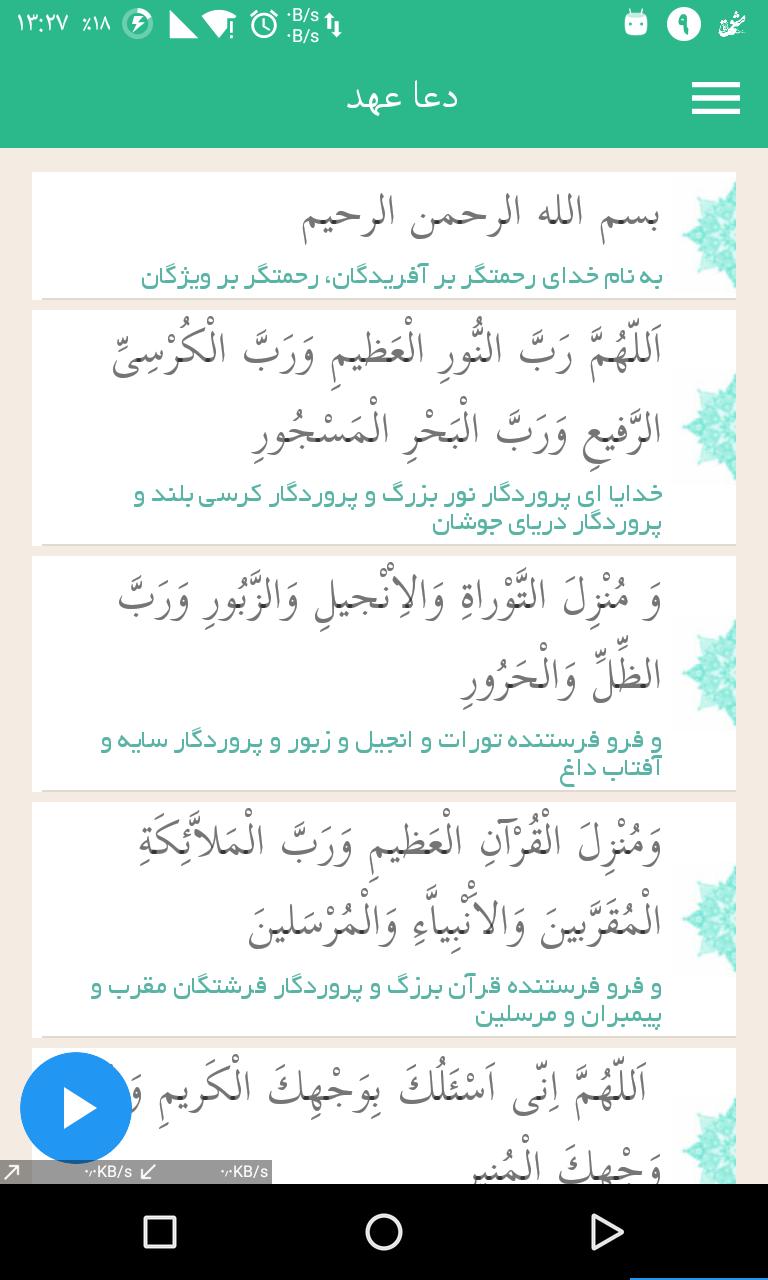 ۱۳:۲۷
٪۱۸
۰B/s
۰B/s
۹
دعا عهد
بسم الله الرحمن الرحیم
به نام خدای رحمتگر بر آفریدگان، رحمتگر بر ویژگان
اَللّهُمَّ رَبَّ النُّورِ الْعَظیمِ وَرَبَّ الْکُرْسِیِّ
الرَّفیعِ وَرَبَّ الْبَحْرِ الْمَسْجُورِ
خدایا ای پروردگار نور بزرگ و پروردگار کرسی بلند و
پروردگار دریای جوشان
وَ مُنْزِلَ التَّوْراةِ وَالاِْنْجیلِ وَالزَّبُورِ وَرَبَّ
الظِّلِّ وَالْحَرُورِ
و فرو فرستنده تورات و انجیل و زبور و پروردگار سایه و
آفتاب داغ
وَمُنْزِلَ الْقُرْآنِ الْعَظیمِ وَرَبَّ الْمَلاَّئِکَةِ
الْمُقَرَّبینَ وَالاَْنْبِیاَّءِ وَالْمُرْسَلینَ
و فرو فرستنده قرآن برزگ و پروردگار فرشتگان مقرب و
پیمبران و مرسلین
اَللّهُمَّ اِنّی اَسْئَلُكَ بِوَجْهِكَ الْکَریمِ
وَجْهِكَ الْمُنیرِ
۰٫۰KB/s ۰٫۰KB/s